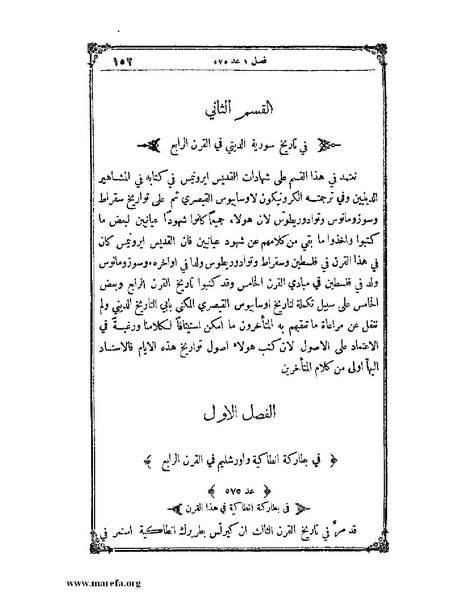 فصل ١ عد ٥٧٥ ١٥٢
القسم الثاني
في تاريخ سورية الديني في القرن الرابع
نعتمد في هذا القسم على شهادات القديس ايرونيمس في كتابه في المشاهير
الدينيين وفي ترجمته الكرونيكون لاوسابيوس القيصري ثم على تواريخ سقراط
وسوزومانوس وتوادوريطوس لان هولاء جميعًا كانوا شهودًا عيانيين لبعض ما
كتبوا واخذوا ما بقي من كلامهم عن شهود عيانيين فان القديس ايرونيمس كان
في هذا القرن في فلسطين وسقراط وتوادوريطوس ولدا في اواخره وسوزومانوس
ولد في فلسطين في مبادي القرن الخامس وقد كتبوا تاريخ القرن الرابع وبعض
الخامس على سبيل تكملة لتاريخ اوسابيوس القيصري المكنى بابي التاريخ الديني ولم
نغفل عن مراعاة ما تعقبهم به المتأخرون ما امكن استيثاقًا لكلامنا ورغبة في
الاعتماد على الاصول لان كتب هولاء اصول تواريخ هذه الايام فالاسناد
اليها اولى من كلام المتأخرين
الفصل الاول
في بطاركة انطاكية واورشليم في القرن الرابع
عد ٥٧٥
في بطاركة انطاكية في هذا القرن
قد مرَّ في تاريخ القرن الثالث ان كيرلس بطريرك انطاكية استمر في
www.marefa.org